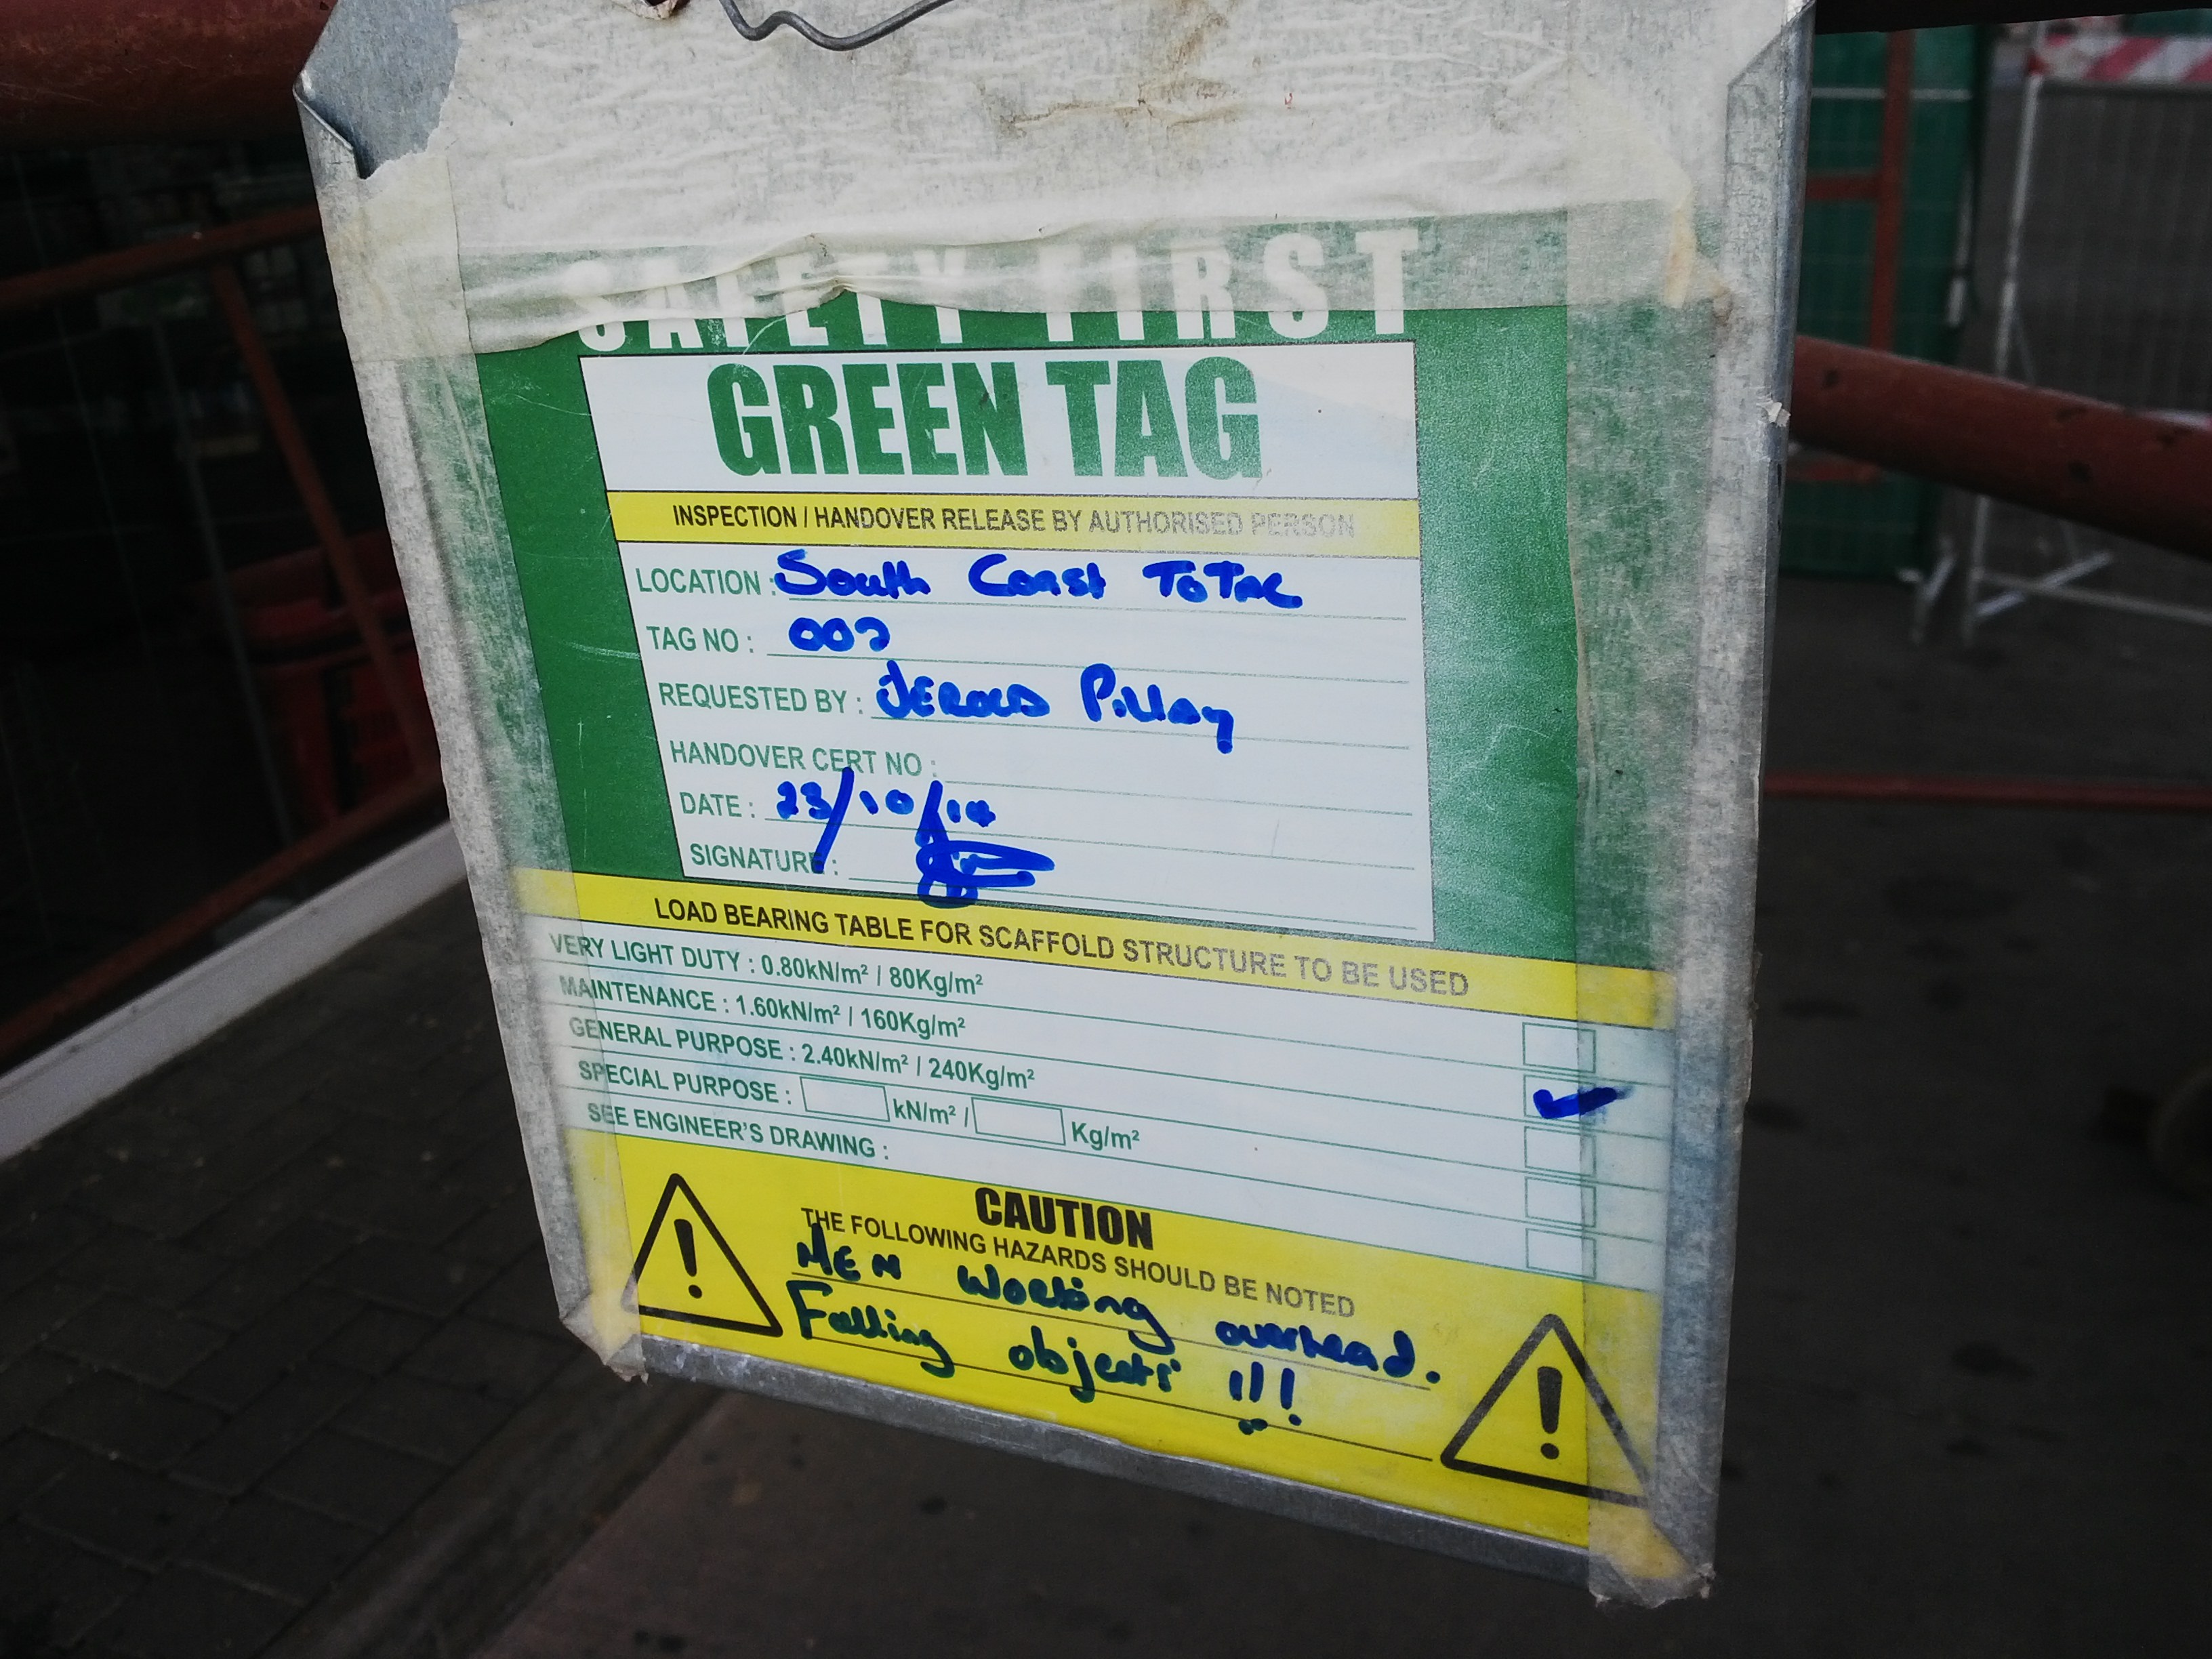 SAFETY FIRST
GREEN TAG
INSPECTION / HANDOVER RELEASE BY AUTHORISED PERSON
LOCATION : South Coast TOTAL
TAG NO : 002
REQUESTED BY : JEROLD Pillay
HANDOVER CERT NO :
DATE : 23/10/14
SIGNATURE :
LOAD BEARING TABLE FOR SCAFFOLD STRUCTURE TO BE USED
VERY LIGHT DUTY : 0.80kN/m² / 80Kg/m²
MAINTENANCE : 1.60kN/m² / 160Kg/m²
GENERAL PURPOSE : 2.40kN/m² / 240Kg/m²
SPECIAL PURPOSE : kN/m² / Kg/m²
SEE ENGINEER'S DRAWING :
CAUTION
THE FOLLOWING HAZARDS SHOULD BE NOTED
MEN Working overhead.
Falling objects !!!